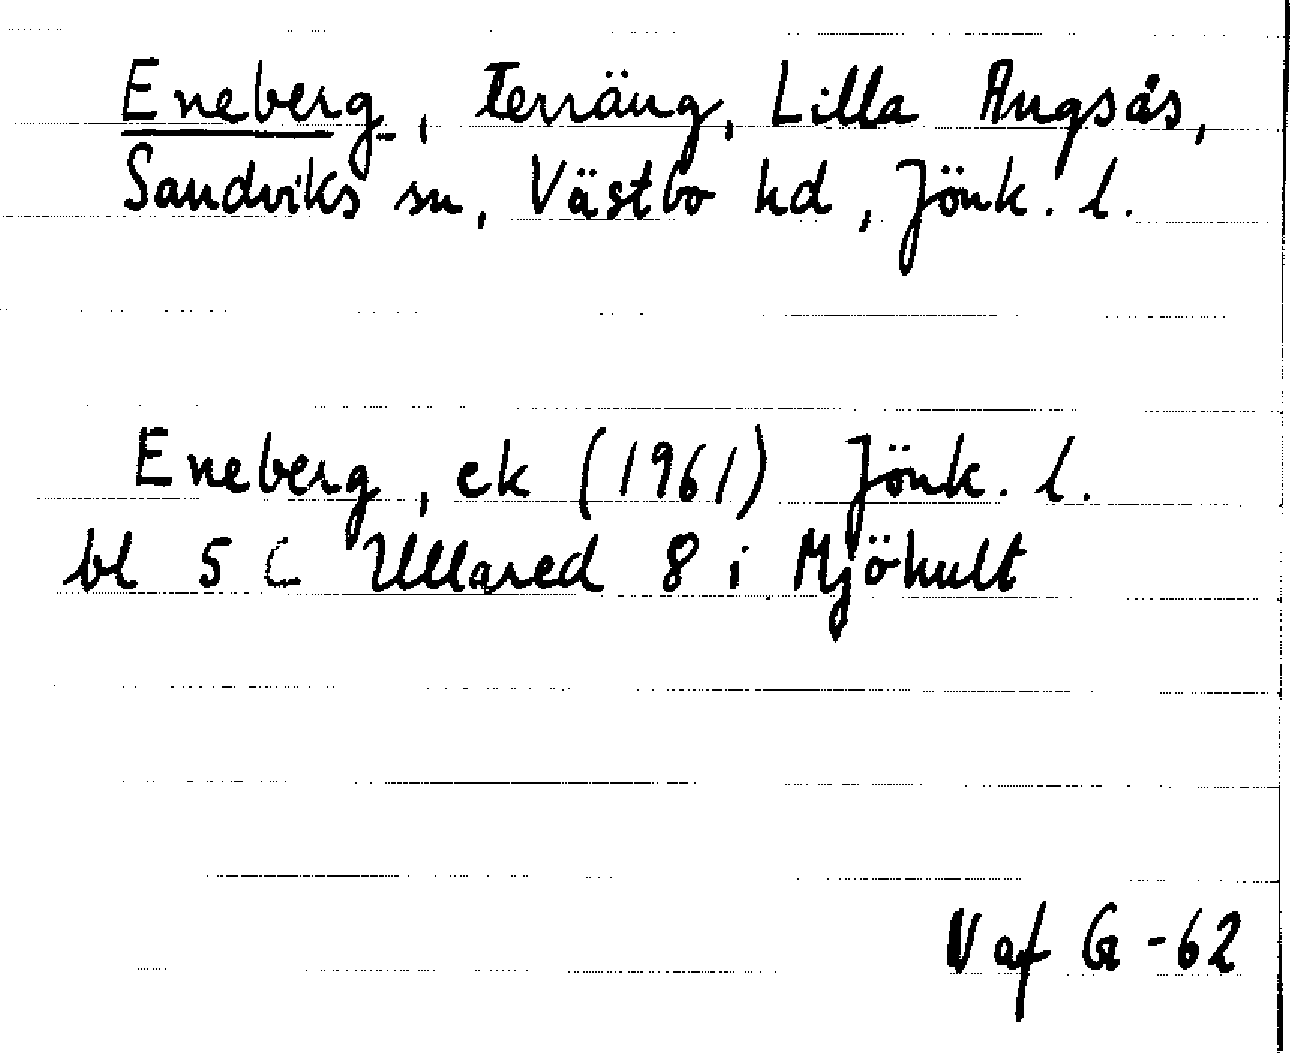 Eneberg, terräng, Lilla Angsås,
Sandviks sn, Västbo hd, Jönk. l.
Eneberg, ek (1961) Jönk. l.
bl 5 C Ullared 8 i Mjöhult
V af G -62